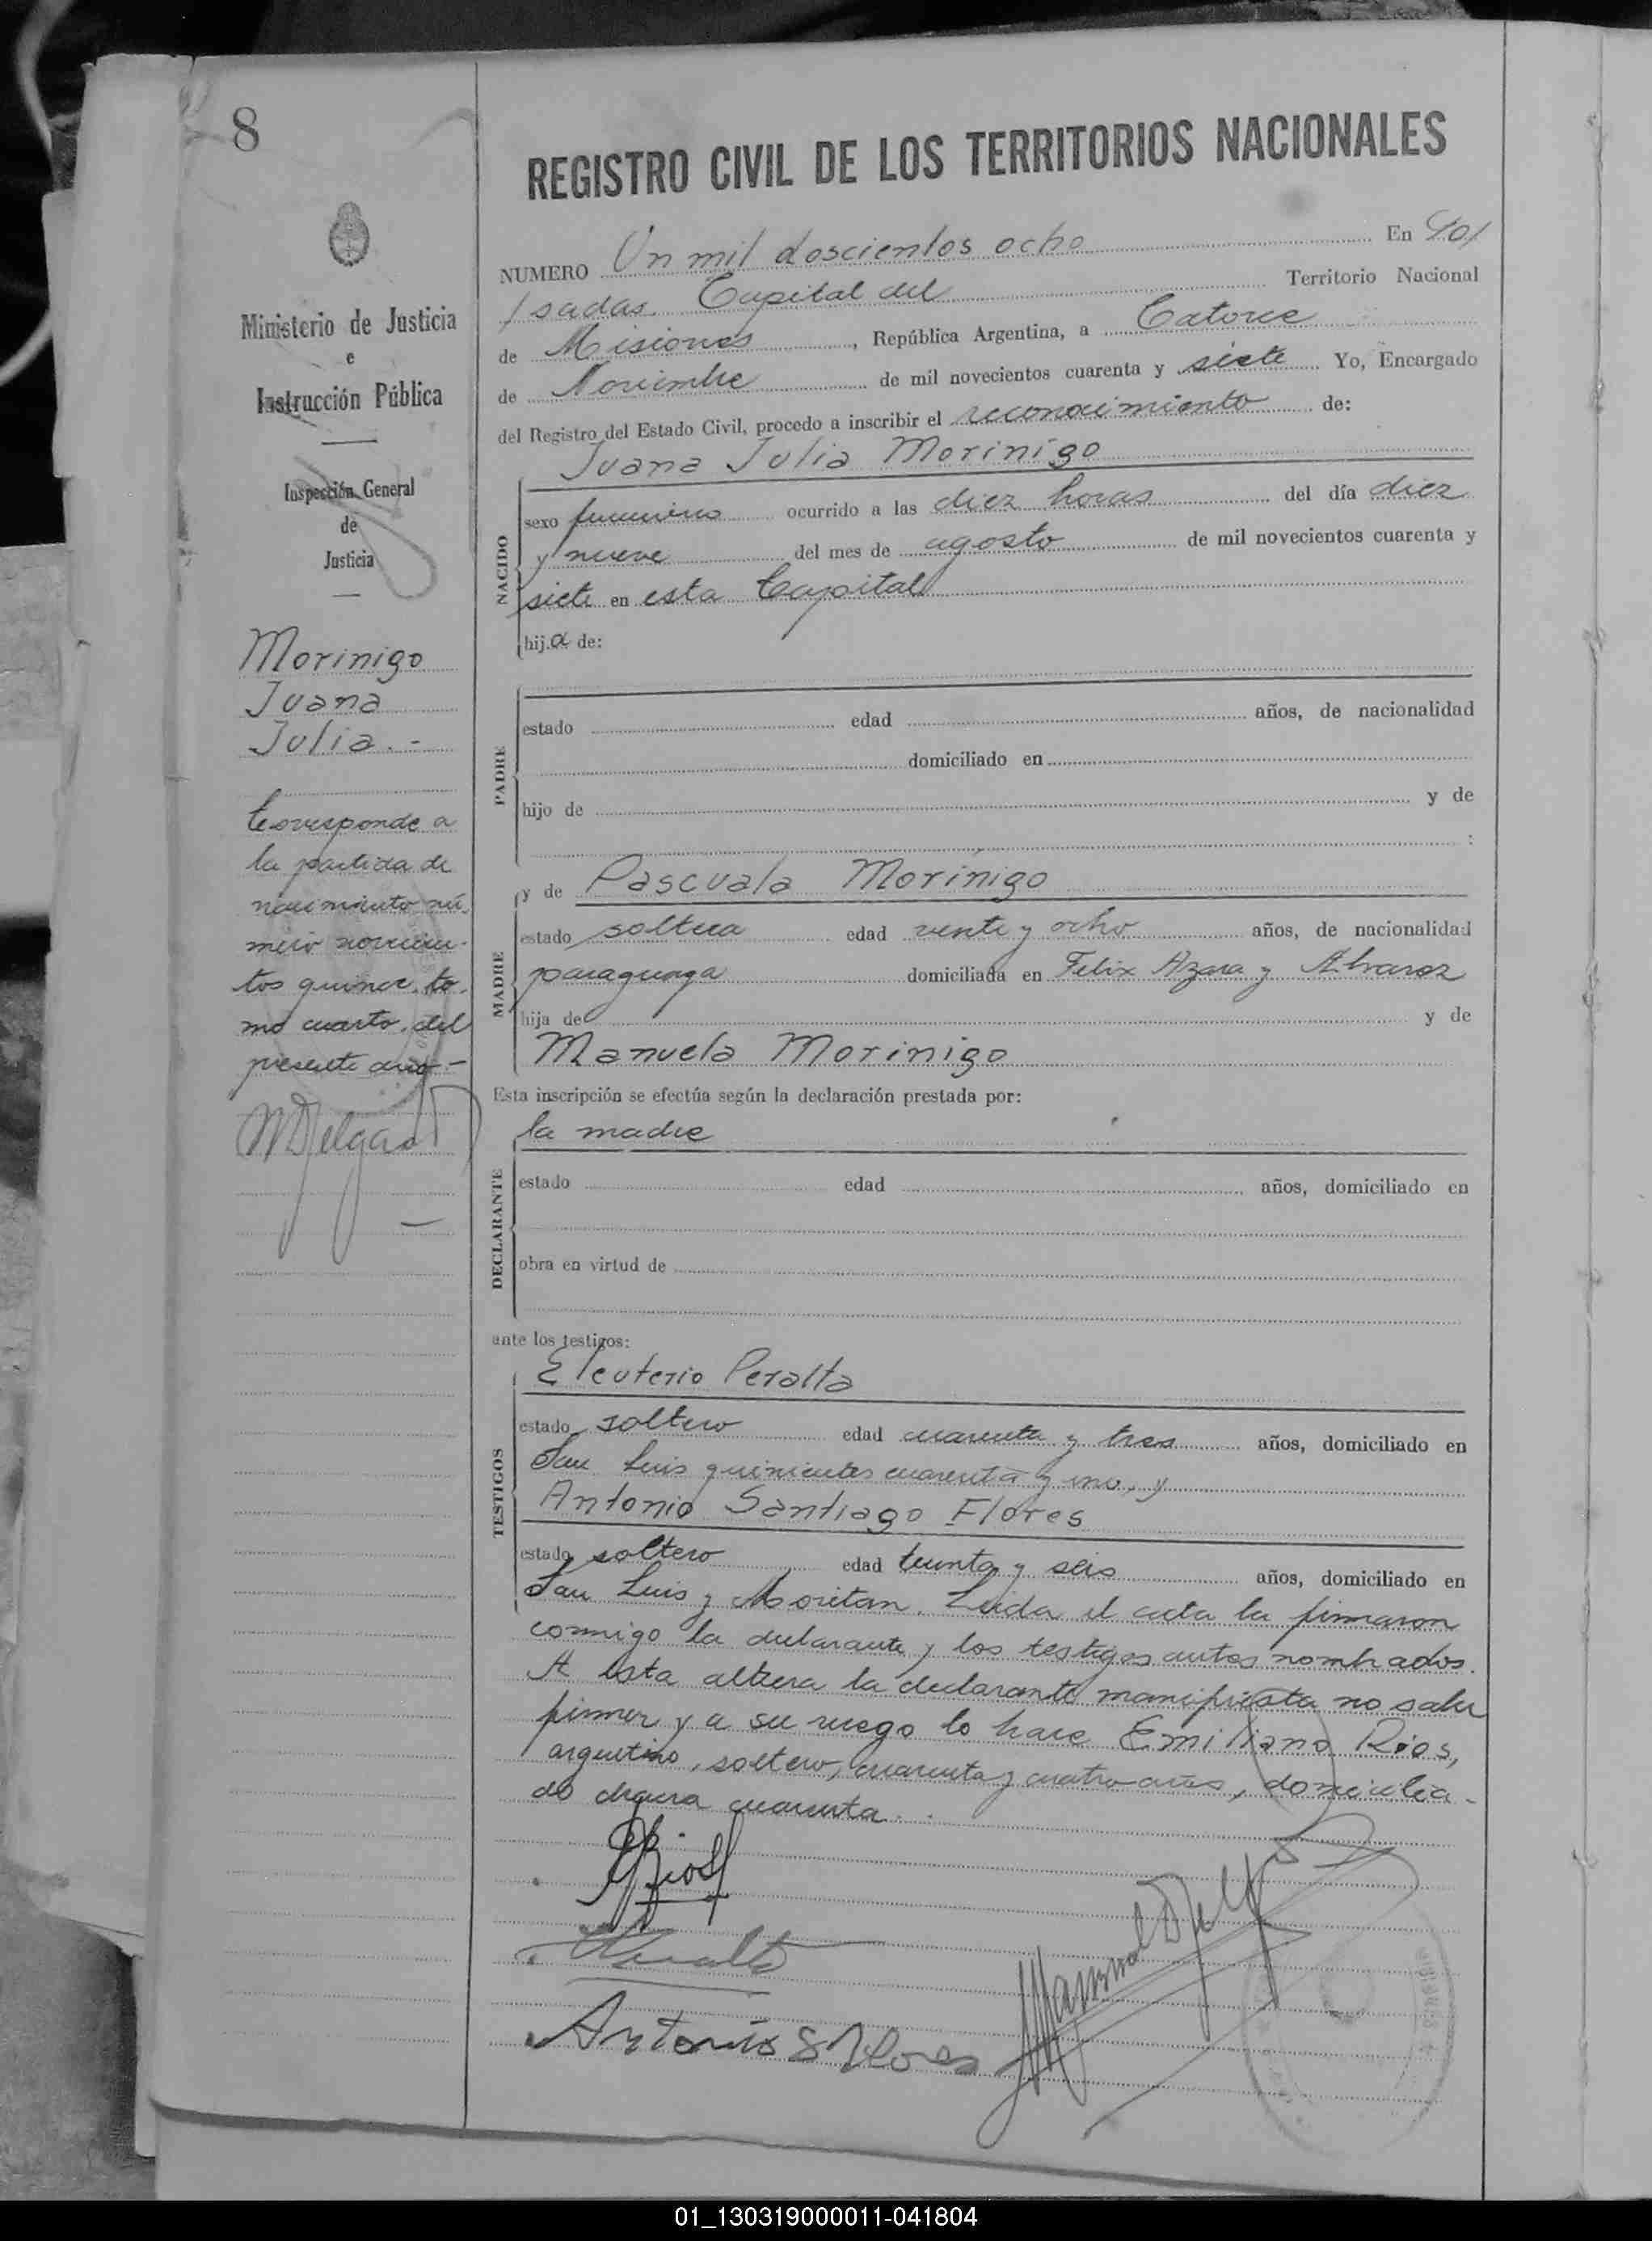 8
REGISTRO CIVIL DE LOS TERRITORIOS NACIONALES
NUMERO Un mil doscientos ocho En Po/
/sadas. Capital del Territorio Nacional
de Misiones, República Argentina, a Catorce
de Noviembre de mil novecientos cuarenta y siete Yo, Encargado
del Registro del Estado Civil, procedo a inscribir el reconocimiento de:
Juana Julia Morinigo
NACIDO
sexo femenino ocurrido a las diez horas del día diez
y nueve del mes de agosto de mil novecientos cuarenta y
siete en esta Capital
hija de:
PADRE
estado edad años, de nacionalidad
domiciliado en
hijo de y de
:
MADRE
y de Pascuala Morinigo
estado soltera edad veinte y ocho años, de nacionalidad
paraguaya domiciliada en Felix Azara y Alvarez
hija de y de
Manuela Morinigo
Esta inscripción se efectúa según la declaración prestada por:
la madre
DECLARANTE
estado edad años, domiciliado en
obra en virtud de
ante los testigos:
TESTIGOS
Eleuterio Peralta
estado soltero edad cuarenta y tres años, domiciliado en
San Luis quinientos cuarenta y uno, y
Antonio Santiago Flores
estado soltero edad treinta y seis años, domiciliado en
San Luis y Moritan. Leida el acta la firmaron
conmigo la declarante y los testigos antes nombrados.
A esta altura la declarante manifiesta no saber
firmar y a su ruego lo hace Emiliano Rios,
argentino, soltero, cuarenta y cuatro años, domicilia-
do chacra cuarenta.
Rios
Peralta
Antonio S Flores
Manuel Delg
Ministerio de Justicia
e
Instrucción Pública
Inspección General
de
Justicia
Morinigo
Juana
Julia.-
Corresponde a
la partida de
nacimiento nú-
mero novecien-
tos quince, to-
mo cuarto, del
presente año-
MDelgado
01_130319000011-041804